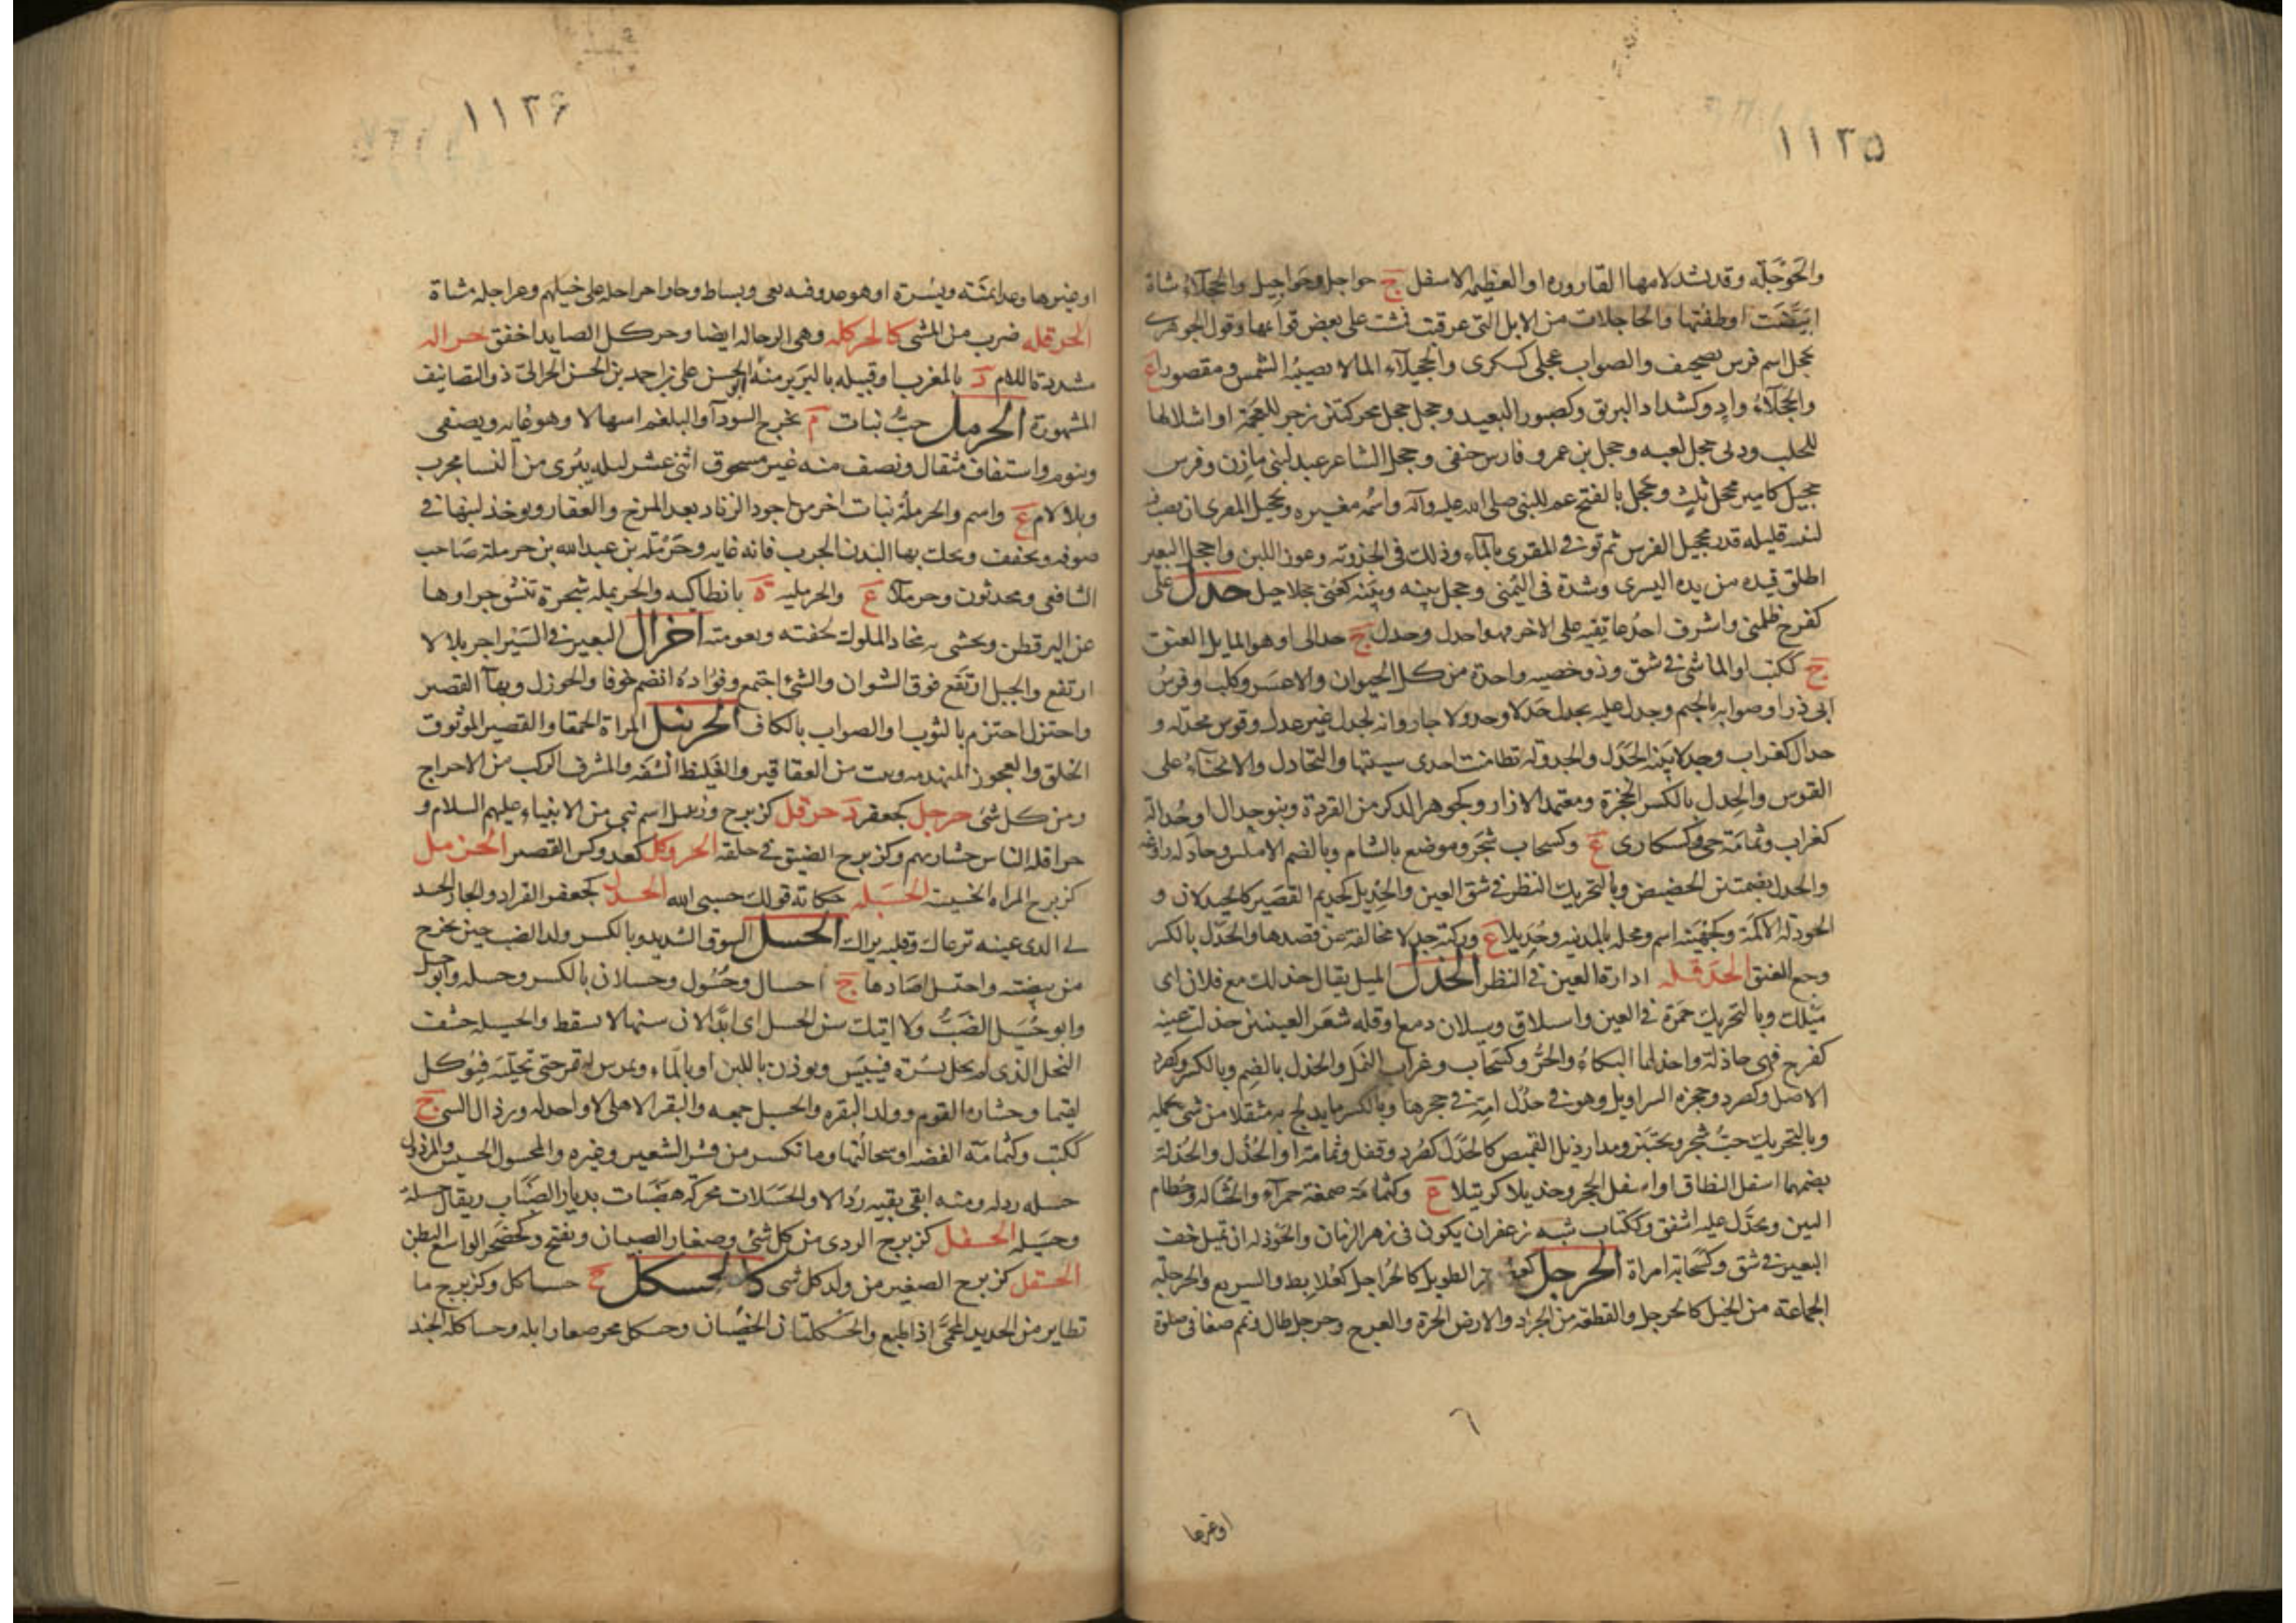 ١١٣٥
والحَوْجَلَة وقد تشدد لامها القارورة او العظيمة الاسفل ج حواجل وحواجيل والحجلاء شاة
ابيضت اوظفتها والحاجلات من الابل التى عرقبت فمشت على بعض قوائمها وقول الجوهرى
تحجل اسم فرس تصحيف والصواب عجلى كسكرى والحجيلاء الماء لا تصيبه الشمس ومقصورا ع
والحجلاء واد وكشداد البريق وكصبور البعيد وحجل حجل محركتين زجر للنعجة او اشلالها
للحلب ودبى حجل لعبة وحجل بن عمرو فارس حنفى وحجل الشاعر عبد لبنى مازن وفرس
حجيل كامير محجل ثلث وحجل بالفتح عم للنبى صلى الله عليه وآله واسمه مغيرة وتحجيل المقرى ان يصب فيه
لبنة قليلة قدر تحجيل الفرس ثم توفى المقرى بالماء وذلك فى الجدوبة وعوز اللبن واحجل البعير
اطلق قيده من يده اليسرى وشده فى اليمنى وحجل بينه وبينه حدل على
كفرح ظلمنى واشرف احد عاتقيه على الاخر فهو احدل وحدل ج حدالى او هو المايل العنق
ج ككتب او الماشى فى شق وذو خصية واحدة من كل الحيوان والاعسر وكلب وفرس
ابى ذر او صوابه بالجيم وحدل عليه يحدل حدلا وحدولا جار وانه لحدل غير عدل وقوس محدلة و
حدال كغراب وحدلا بينة الحدل والحدولة تطامنت احدى سيتيها والتحادل والانحناء على
القوس والحدل بالكسر الحجزة ومعقد الازار وكجوهر الذكر من القردة وبنو حدال او حدالة
كغراب وثمامة حى وكسكارى ع وكسحاب شجر وموضع بالشام وبالضم الاملس وحادله راوغه
والحدل بضمتين الحضيض وبالتحريك النظر فى شق العين والحديل كحذيم القصير كالحيدلان و
الحودلة الاكمة وكجهينة اسم ومحلة بالمدينة وحديلا ع وركية حدلا مخالفة عن قصدها والحدل بالكسر
وجع العنق الحدقلة ادارة العين فى النظر الحذل الميل يقال حذلك مع فلان اى
ميلك وبالتحريك حمرة فى العين وانسلاق وسيلان دمع او قلة شعر العينين حذلت عينه
كفرح فهى حاذلة واحذلها البكاء والحر وكسحاب وغراب النمل والحذل بالضم وبالكسر وكصرد
الاصل وكصرد وحجزة السراويل وهو فى حذل امه فى حجرها وبالكسر ما يدلج به مثقلا من شئ تحمله
وبالتحريك حب شجر ويختبز ومدار ذيل القميص كالحذل كصرد وقفل وثمامة او الحذل والحذلة
بضمهما اسفل النطاق او اسفل الحجز وحذيلا كرتيلا ع وكثمامة صمغة حمراء والحثالة وحطام
التبن وتحذل عليه اشفق وككتاب شبه زعفران يكون فى زهر الرمان والحوذلة ان تميل خف
البعير فى شق وكسحابة امراة الحرجل الطويل كالحراجل كعلابط والسريع والحرجلة
الجماعة من الخيل كالحرجل والقطعة من الجراد والارض الحرة والعرج وحرجل طال وتمم صفا فى صلوة
اوغيرها
١١٣۶
اوغيرها وعدا يمنة ويسرة او هو عدو فيه بغى وبساط وجاوا حراجلة على خيلهم وعراجلة مشاة
الحرقلة ضرب من المشى كالحركلة وهى الرجالة ايضا وحركل الصايد اخفق حرالة
مشددة اللام د بالمغرب او قبيلة بالبربر منه ابو الحسن على بن احمد بن الحسن الحرالى ذو التصانيف
المشهورة الحرمل حب نبات م يخرج السودآ والبلغم اسهالا وهو غاية ويصفى
وينوم واستفاف مثقال ونصف منه غير مسحوق اثنى عشر ليلة يبرى من النسا مجرب
وبلا لام ع واسم والحرملة نبات اخر من اجود الزناد بعد المرخ والعفار ويوخذ لبنها فى
صوفة ويجفف ويحلت بها البدن الجرب فانه غاية وحرملة بن عبد الله بن حرملة صاحب
الشافعى ومحدثون وحرملا ع والحرملية ة بانطاكية والحريملة شجرة تنشو جراوها
عن الين قطن ويحشى به مخاد الملوك لخفته ونعومته احزال البعير فى السير
ارتفع والجبل ارتفع فوق السراب والشئ اجتمع وفواده انضم خوفا والحوزل وبهآ القصير
واحتزل احتزم بالثوب او الصواب بالكاف الحزنبل المراة الحمقا والقصير الموثوق
الخلق والعجوز المنهدمة ونبت من العقاقير والغليظ الشفة والمشرف الركب من الاحراج
ومن كل شئ حزجل كجعفر د حزقل كزبرج وزنبيل اسم نبى من الانبياء عليهم السلام و
حزاقلة الناس خشارتهم وكزبرج الضيق فى خلقه الحزوكل كفدوكس القصير الحزمل
كزبرج المراة الخسيسة الحسبلة حكاية قولك حسبى الله الحسدل كجعفر القراد والجار الحسد
لى الذى عينه ترعاك وقلبه يراك الحسل السوق الشديد وبالكسر ولد الضب حين يخرج
من بيضته واحتسل اصادها ج احسال وحسول وحسلان بالكسر وحسلة وابو حسل
وابو حسيل الضب ولا اتيك سن الحسل اى ابدا لان سنها لا يسقط والحسيلة حشف
النخل الذى لم يحل بسره فييبس ويوذن باللبن او بالماء ويمرس له تمر حتى تحليه فيوكل
لقيما وخشارة القوم وولد البقرة والحسيل جمعه والبقر الاهلى لا واحد له ورذال الشئ ج
ككتب وكثمامة الفضة او سحالتها وما تكسر من قشر الشعير وغيره والمحسول الخسيس والمرذول
حسله رذله ومنه ابقى بقية رذالا والحسلات محركة هضبات بديار الضباب ويقال حسلة
وحسيلة الحسفل كزبرج الردى من كل شئ وصغار الصبيان ويفتح وكحضجر الواسع البطن
الحسقل كزبرج الصغير من ولد كل شئ كالحسكل ج حساكل وكزبرج ما
تطاير من الحديد المحمى اذا طبع والحسكلتان الخصيان وحسكل نحر صغار ابله وحساكلة الجند